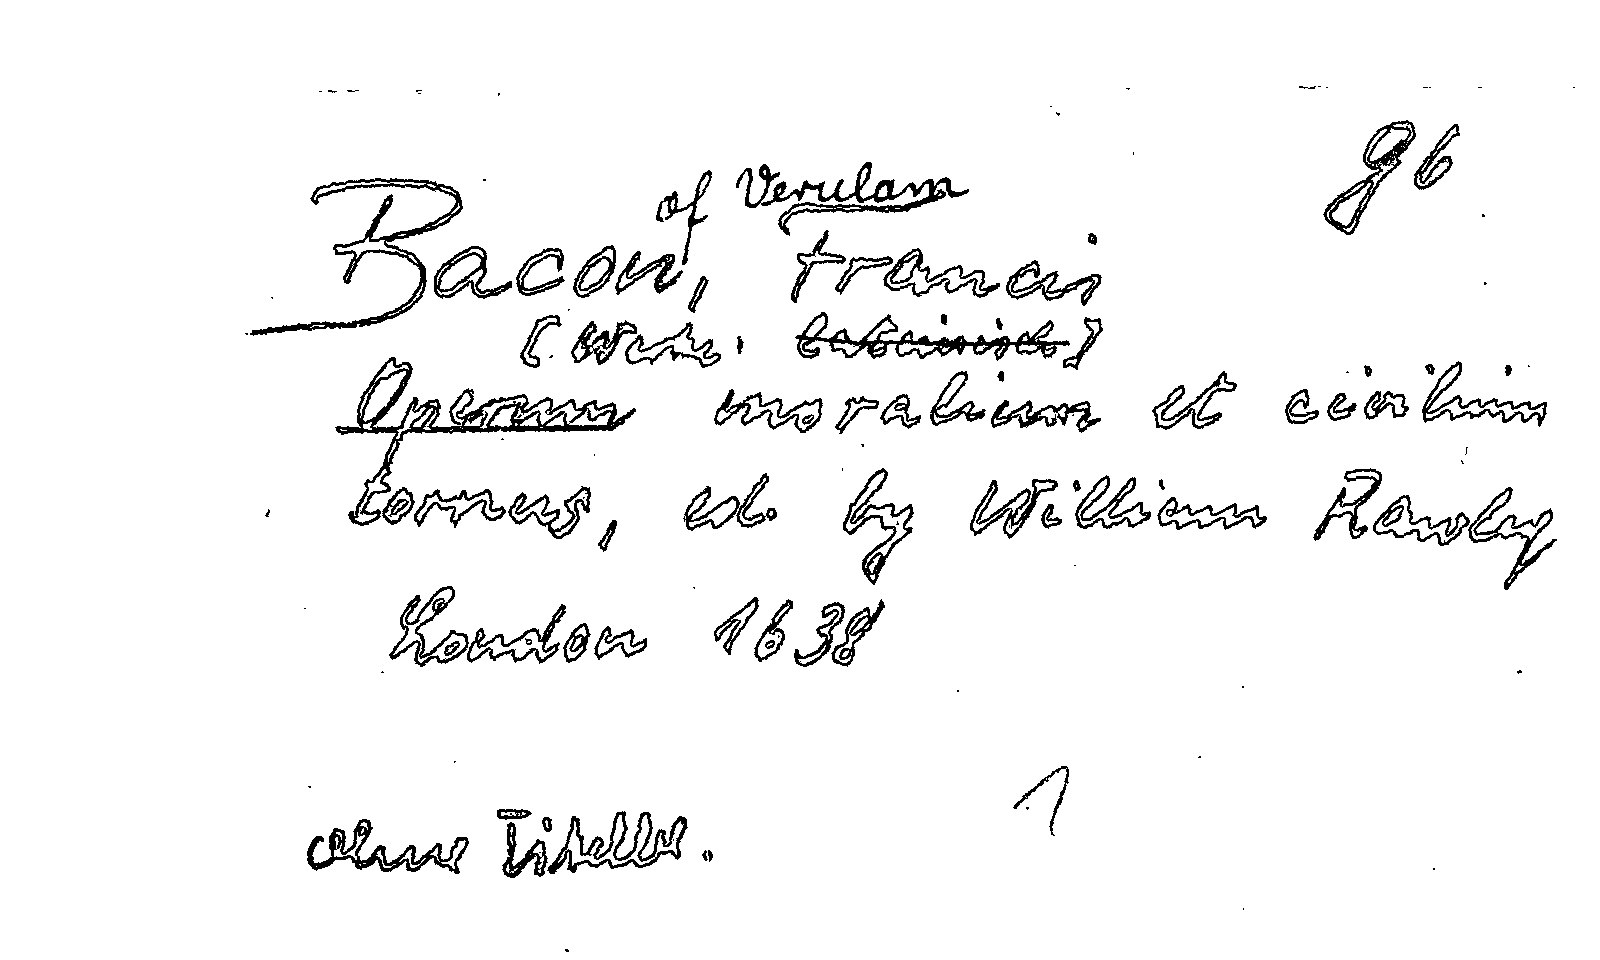 g6
of Verulam
Bacon, Francis
(Werke. lateinisch)
Operum moralium et civilium
tomus, ed. by William Rawley
London 1638
1
ohne Titelbl.